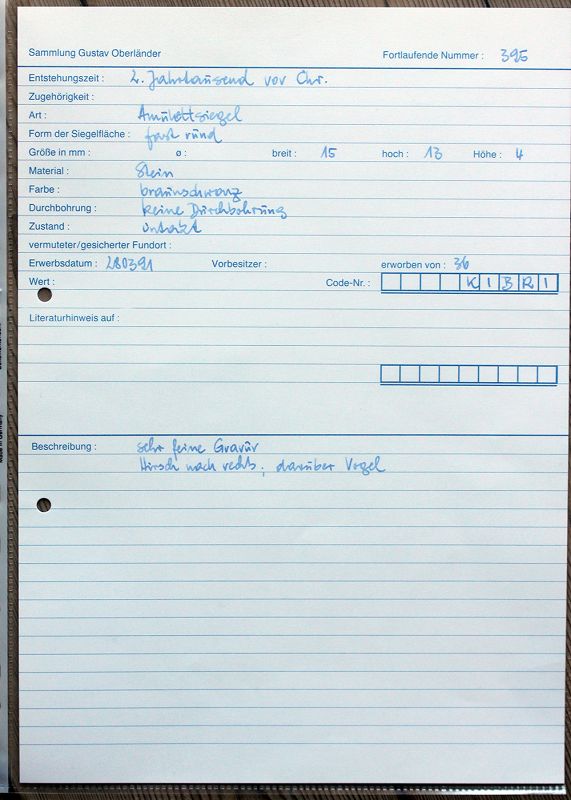 Sammlung Gustav Oberländer Fortlaufende Nummer : 395
Entstehungszeit : 2. Jahrtausend vor Chr.
Zugehörigkeit :
Art : Amulettsiegel
Form der Siegelfläche : fast rund
Größe in mm : ø : breit : 15 hoch : 13 Höhe : 4
Material : Stein
Farbe : braunschwarz
Durchbohrung : keine Durchbohrung
Zustand : intakt
vermuteter/gesicherter Fundort :
Erwerbsdatum : 280391 Vorbesitzer : erworben von : 36
Wert : Code-Nr. : KIBRI
Literaturhinweis auf :
Beschreibung : sehr feine Gravur
Hirsch nach rechts, darüber Vogel